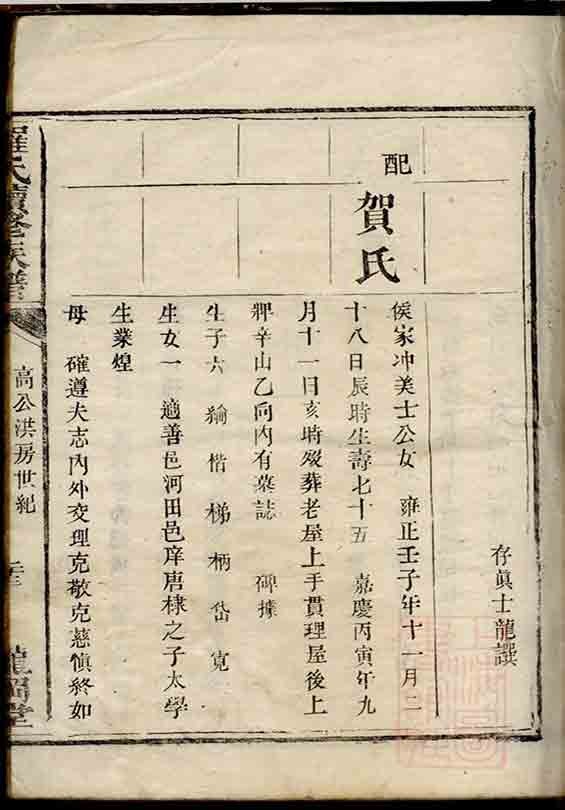 存眞士龍譔
配
賀氏
侯家冲美士公女 雍正壬子年十一月二
十八日辰時生壽七十五 嘉慶丙寅年九
月十一日亥時歿葬老屋上手貫理屋後上
辛山乙向內有墓誌 碑據
生子六 綸 楷 梯 柄 岱 寬
生女一 適善邑河田邑庠唐棣之子太學
生業煌
母 確遵夫志內外交理克敬克慈愼終如
羅氏續修族譜
高公洪房世紀